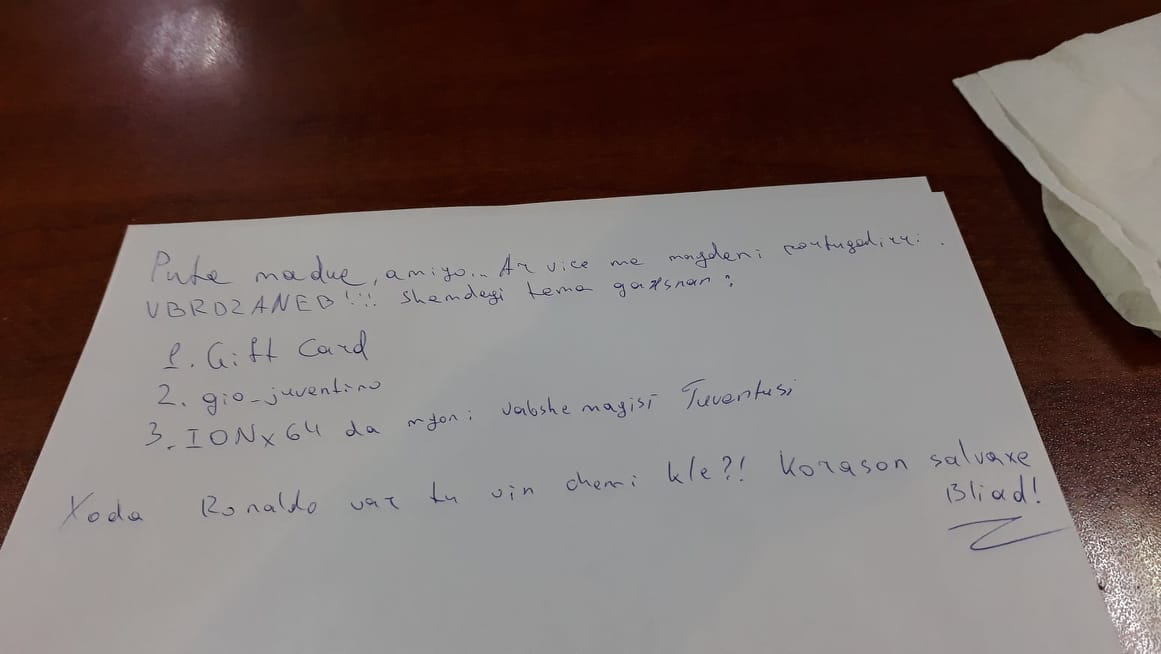 Puta madre, amigo.. Ar vice me magdeni portugaliuri.
VBRDZANEB!!! Shemdegi tema gaxsnan:
1. Gift Card
2. gio-juventino
3. IONx64 da mgoni vabshe magisi Juventusi
Xoda Ronaldo var tu vin chemi kle?! Korason salvaxe
Bliad!